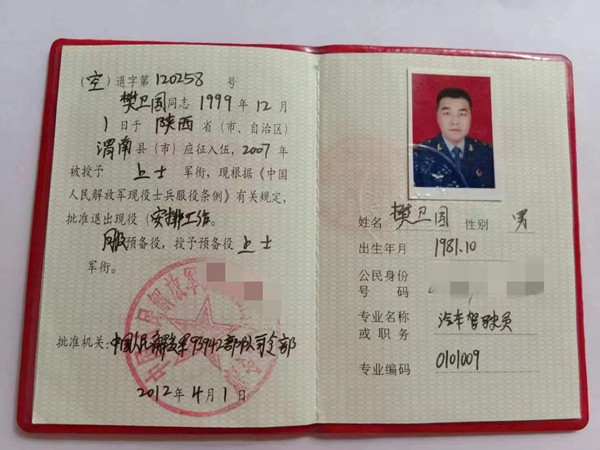 （空）退字第 120258 号
樊卫国同志 1999 年 12 月
1 日于 陕西 省（市、自治区）
渭南 县（市）应征入伍，2007 年
被授予 上士 军衔，现根据《中国
人民解放军现役士兵服役条例》有关规定，
批准退出现役（安排工作。
服预备役，授予预备役 上士
军衔。
批准机关：中国人民解放军93942部队司令部
2012 年 4 月 1 日
姓名 樊卫国 性别 男
出生年月 1981.10
公民身份
号码
专业名称 汽车驾驶员
或职务
专业编码 0101009